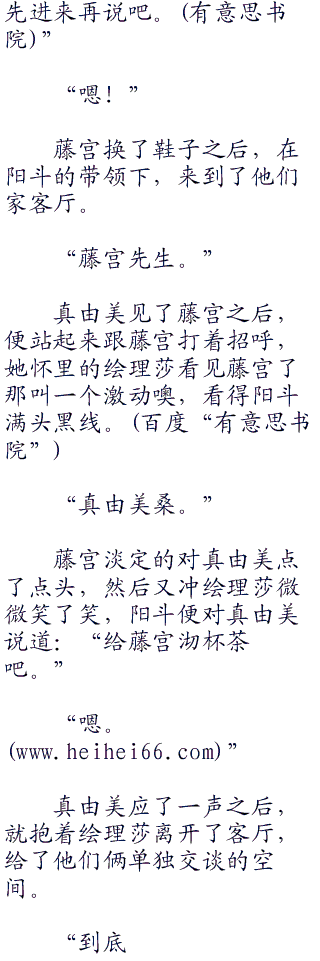 先进来再说吧。(有意思书
院)”
“嗯！”
藤宫换了鞋子之后，在
阳斗的带领下，来到了他们
家客厅。
“藤宫先生。”
真由美见了藤宫之后，
便站起来跟藤宫打着招呼，
她怀里的绘理莎看见藤宫了
那叫一个激动噢，看得阳斗
满头黑线。(百度“有意思书
院”)
“真由美桑。”
藤宫淡定的对真由美点
了点头，然后又冲绘理莎微
微笑了笑，阳斗便对真由美
说道：“给藤宫沏杯茶
吧。”
“嗯。
(www.heihei66.com)”
真由美应了一声之后，
就抱着绘理莎离开了客厅，
给了他们俩单独交谈的空
间。
“到底